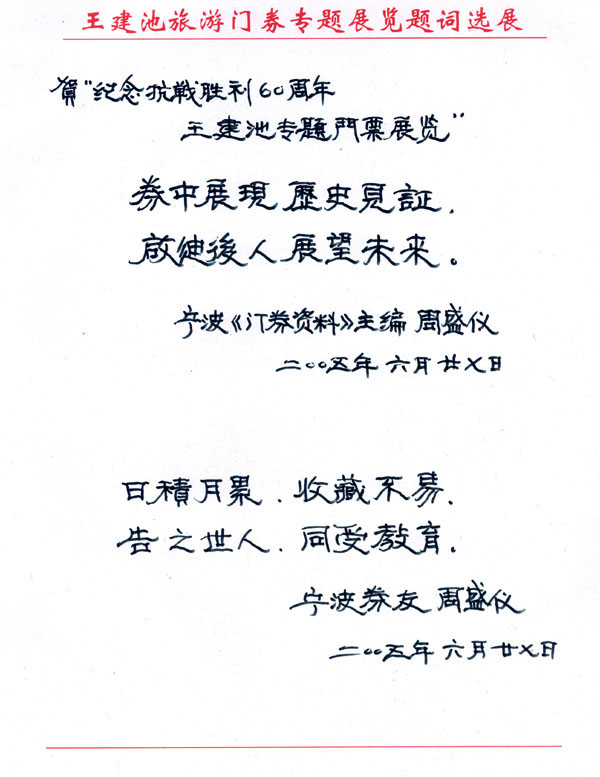 王建池旅游门券专题展览题词选展
賀“纪念抗战胜利60周年
王建池专题門票展览”
券中展現歷史見証，
啟迪後人展望未来。
宁波《门券资料》主编 周盛仪
二〇〇五年六月廿七日
日積月累、收藏不易，
告之世人、同受教育。
宁波券友 周盛仪
二〇〇五年六月廿七日